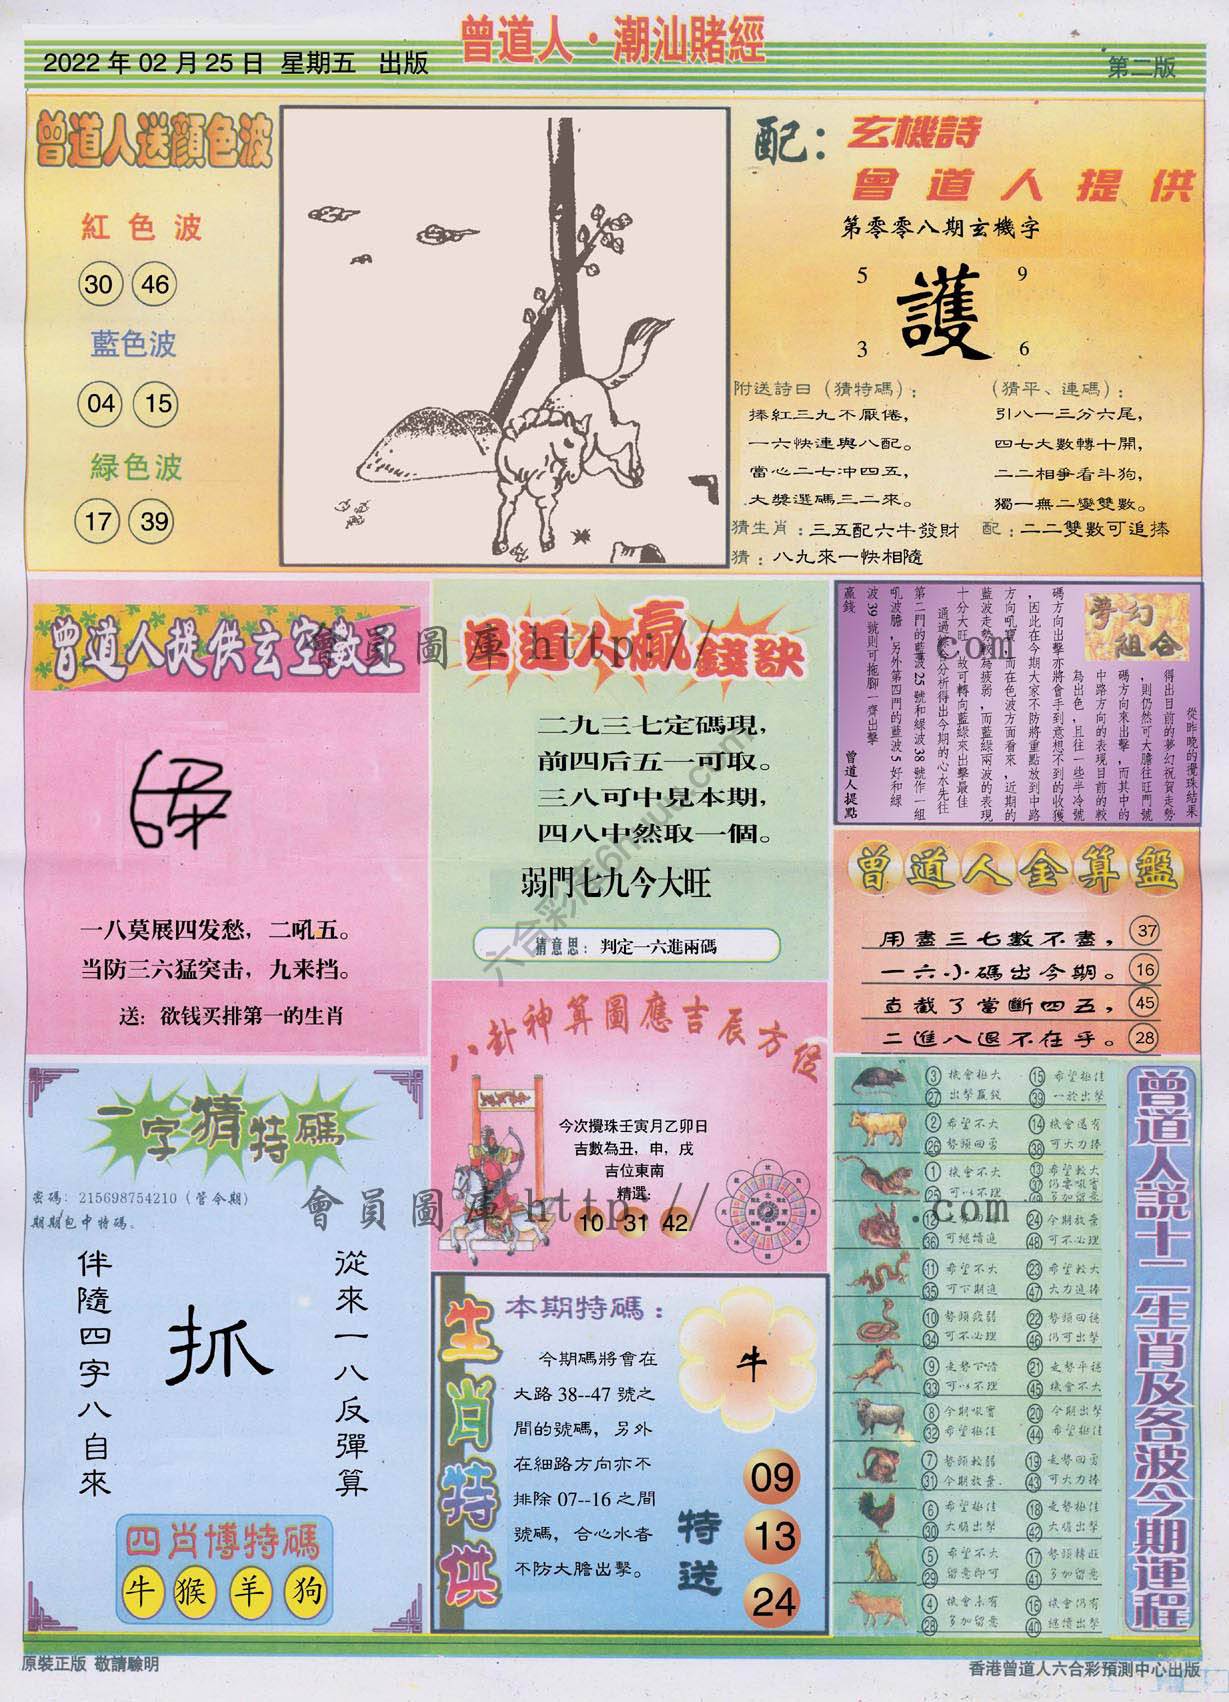 曾道人·潮汕賭經
2022 年 02 月 25 日 星期五 出版
第二版
曾道人送顏色波
紅色波
30 46
藍色波
04 15
緑色波
17 39
配：玄機詩
曾道人提供
第零零八期玄機字
5 9
護
3 6
附送詩曰（猜特碼）：
捧紅三九不厭倦，
一六快連與八配。
當心二七沖四五，
大獎選碼三二來。
（猜平、連碼）：
引八一三分六尾，
四七大數轉十開，
二二相爭看斗狗，
獨一無二變雙數。
猜生肖：三五配六牛發財
配：二二雙數可追捧
猜：八九來一快相隨
曾道人提供玄空數王
一八莫展四发愁，二吼五。
当防三六猛突击，九来挡。
送：欲钱买排第一的生肖
曾道人贏錢訣
二九三七定碼現，
前四后五一可取。
三八可中見本期，
四八中然取一個。
弱門七九今大旺
猜意思：判定一六進兩碼
夢幻組合
從昨晚的攪珠結果
得出目前的夢幻祝賀走勢
，則仍然可大膽往旺門號
碼方向來出擊，而其中的
中路方向的表現目前的較
為出色，且往一些半冷號
碼方向出擊亦將會手到意想不到的收獲
，因此在今期大家不防將重點放到中路
方向吼寶，而在色波方面看來，近期的
藍波走勢較為疲弱，而藍綠兩波的表現
十分大旺，故可轉向藍綠來出擊最佳
通過綜合分析得出今期的心水先往
第二門的藍波 25 號和綠波 38 號作一組
吼波膽，另外第四門的藍波 5 好和綠
波 39 號則可拖腳一齊出擊
贏錢
曾道人提點
曾道人金算盤
用盡三七數不盡， 37
一六小碼出今期。 16
直截了當斷四五， 45
二進八退不在乎。 28
八卦神算圖應吉辰方位
今次攪珠壬寅月乙卯日
吉數為丑，申，戌
吉位東南
精選：
10 31 42
一字猜特碼
密碼：215698754210（管今期）
期期包中特碼。
從來一八反彈算
抓
伴隨四字八自來
四肖博特碼
牛 猴 羊 狗
生肖特供
本期特碼：
今期碼將會在
大路 38--47 號之
間的號碼，另外
在細路方向亦不
排除 07--16 之間
號碼，合心水者
不防大膽出擊。
牛
特送
09
13
24
曾道人說十二生肖及各波今期運程
3 機會極大 15 希望極佳
27 出擊贏錢 39 一於出擊
2 希望不大 14 機會還有
26 勢頭回勇 38 可大力捧
1 機會不大 13 希望較大
25 可以不理 37 仍要吸寶
49 多加留意
12 24 今期放棄
36 可繼續追 48 可不必理
11 希望不大 23 希望較大
35 可下期追 47 大力追捧
10 勢頭疲弱 22 勢頭回穩
34 可不必理 46 仍可出擊
9 走勢下滑 21 走勢平穩
33 可以不理 45 機會不大
8 今期吸寶 20 今期出擊
32 希望極佳 44 希望極佳
7 勢頭較弱 19 走勢回勇
31 今期放棄. 43 可大力捧
6 希望極佳 18 走勢極佳
30 大膽出擊 42 大膽出擊
5 希望不大 17 勢頭轉旺
29 留意即可 41 多加留意
4 機會未有 16 機會仍有
28 多加留意 40 繼續出擊
會員圖庫 http:// .com
會員圖庫 http:// .com
原裝正版 敬請驗明
香港曾道人六合彩預測中心出版